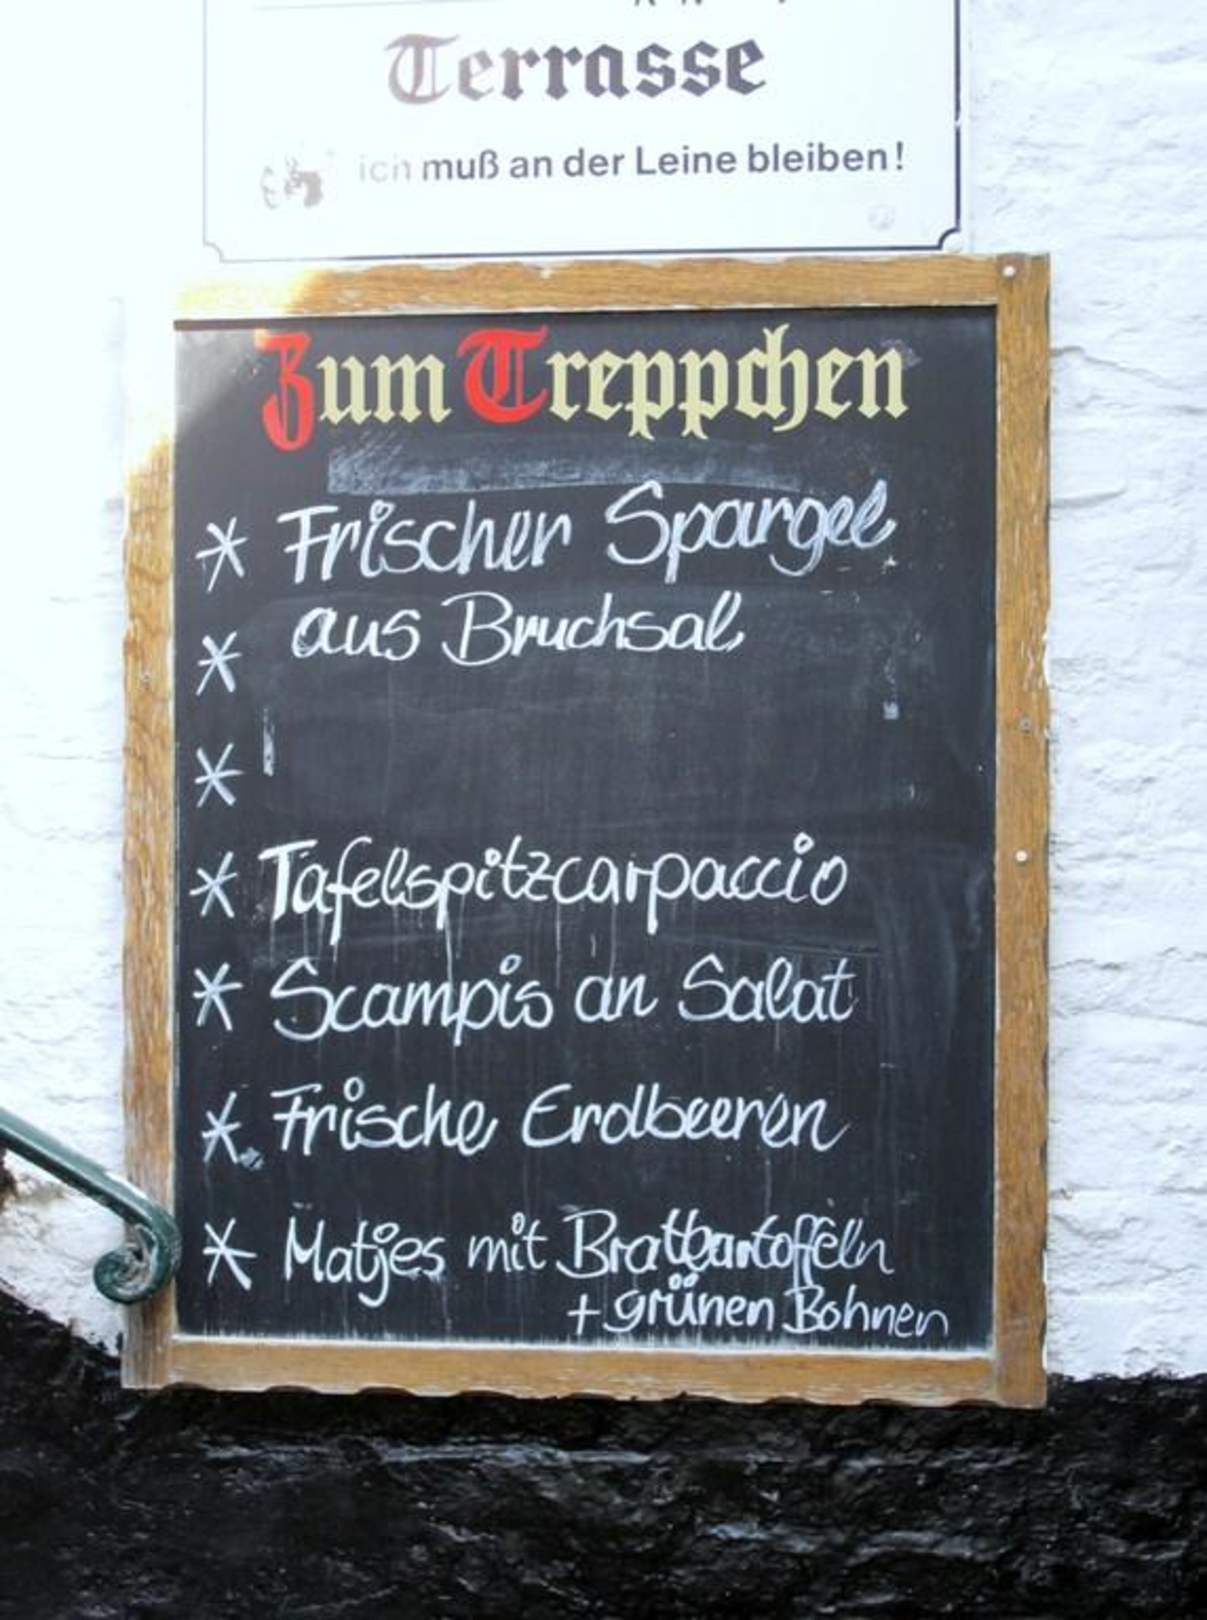 Terrasse
ich muß an der Leine bleiben!
Zum Treppchen
* Frischer Spargel
* aus Bruchsal
*
* Tafelspitzcarpaccio
* Scampis an Salat
* Frische Erdbeeren
* Matjes mit Bratkartoffeln
+ grünen Bohnen